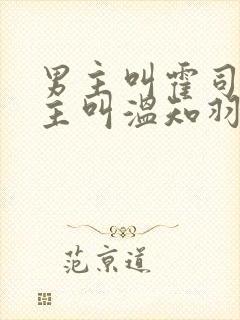 男主叫霍司
主叫温知羽
范京道